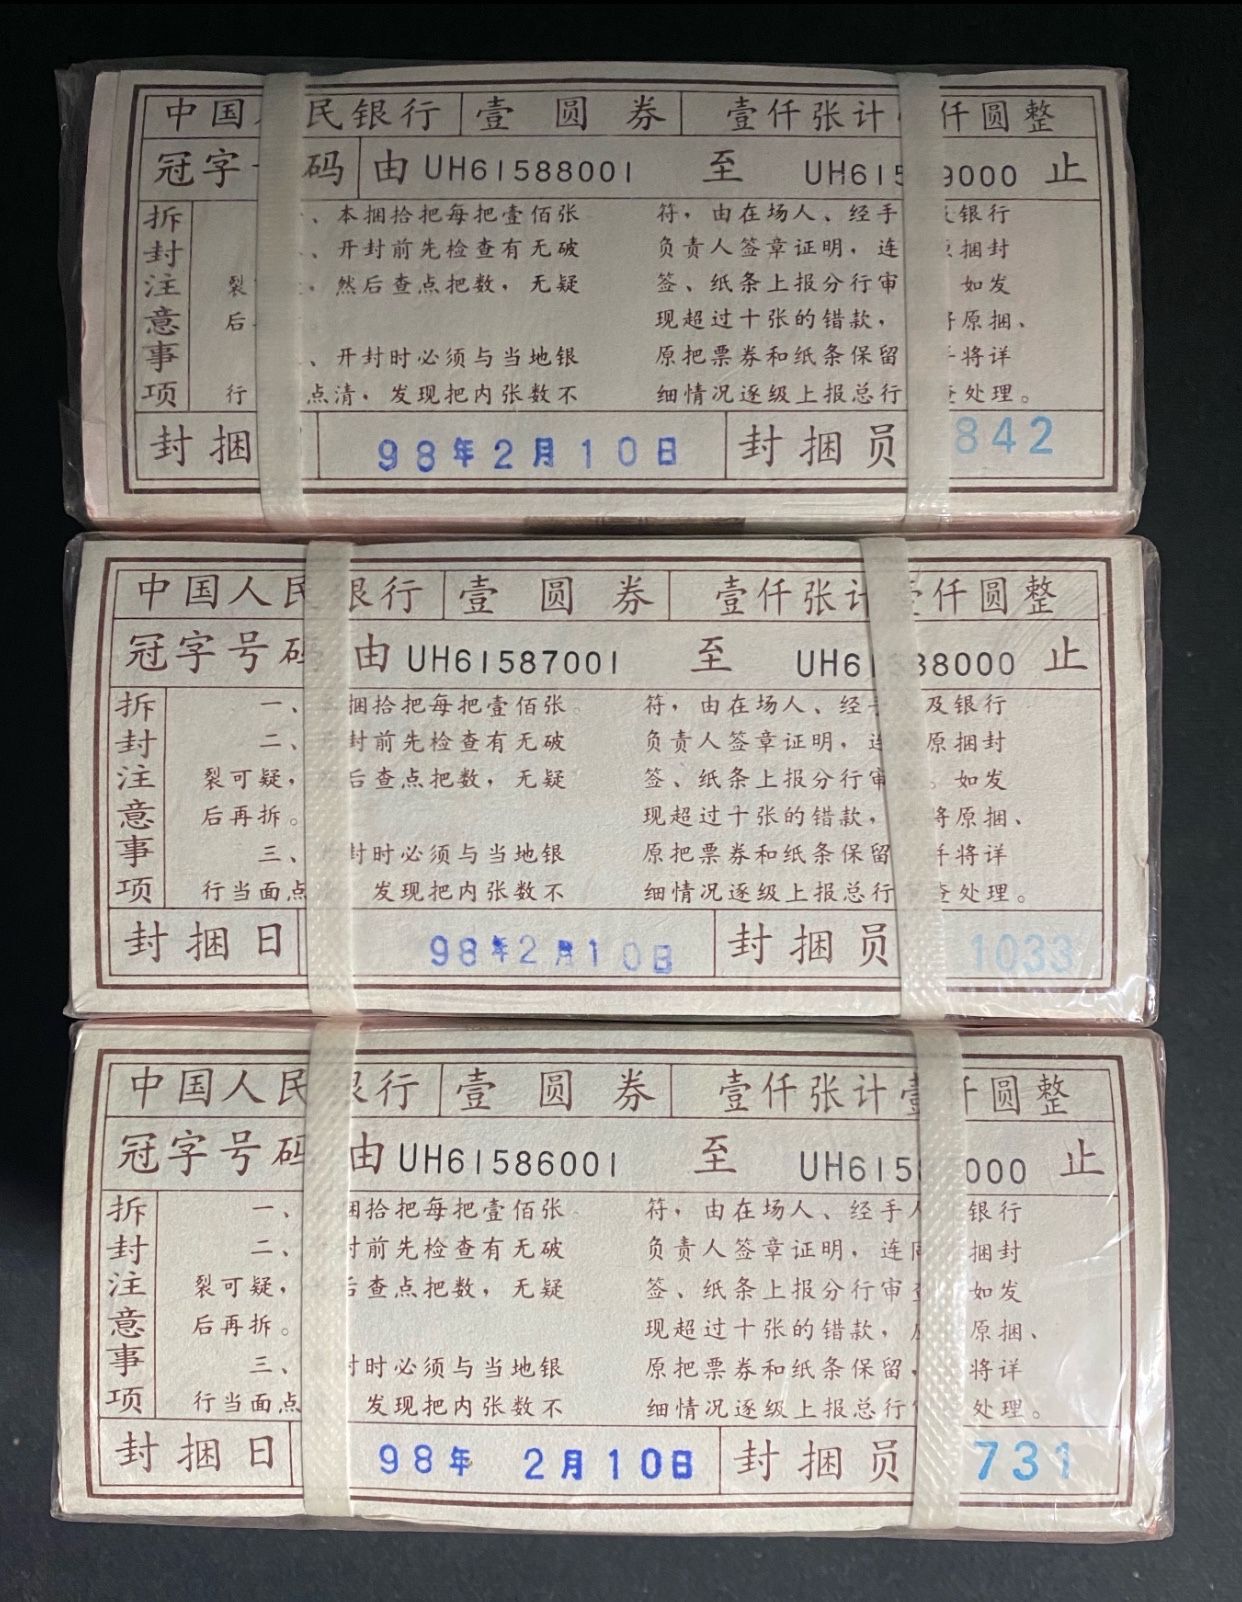 中国人民银行 壹圆券 壹仟张计 仟圆整
冠字 码 由UH61588001 至 UH615 9000 止
拆封注意事项
、本捆拾把每把壹佰张
、开封前先检查有无破
裂 ,然后查点把数,无疑
后
、开封时必须与当地银
行 点清,发现把内张数不
符,由在场人、经手 银行
负责人签章证明,连 原捆封
签、纸条上报分行审 如发
现超过十张的错款, 将原捆、
原把票券和纸条保留 将详
细情况逐级上报总行 查处理。
封捆 98年2月10日 封捆员 842
中国人民银行 壹圆券 壹仟张计壹仟圆整
冠字号码 由UH61587001 至 UH61 88000 止
拆封注意事项
一、 捆拾把每把壹佰张。
二、开封前先检查有无破
裂可疑, 后查点把数,无疑
后再拆。
三、 封时必须与当地银
行当面点 发现把内张数不
符,由在场人、经 及银行
负责人签章证明,连 原捆封
签、纸条上报分行审 。如发
现超过十张的错款, 将原捆、
原把票券和纸条保留 将详
细情况逐级上报总行 查处理。
封捆日 98年2月10日 封捆员 1033
中国人民银行 壹圆券 壹仟张计壹仟圆整
冠字号码 由UH61586001 至 UH615 000 止
拆封注意事项
一、 捆拾把每把壹佰张。
二、 封前先检查有无破
裂可疑, 后查点把数,无疑
后再拆。
三、 封时必须与当地银
行当面点 发现把内张数不
符,由在场人、经手人 银行
负责人签章证明,连同 捆封
签、纸条上报分行审查 如发
现超过十张的错款, 原捆、
原把票券和纸条保留, 将详
细情况逐级上报总行 处理。
封捆日 98年 2月10日 封捆员 731